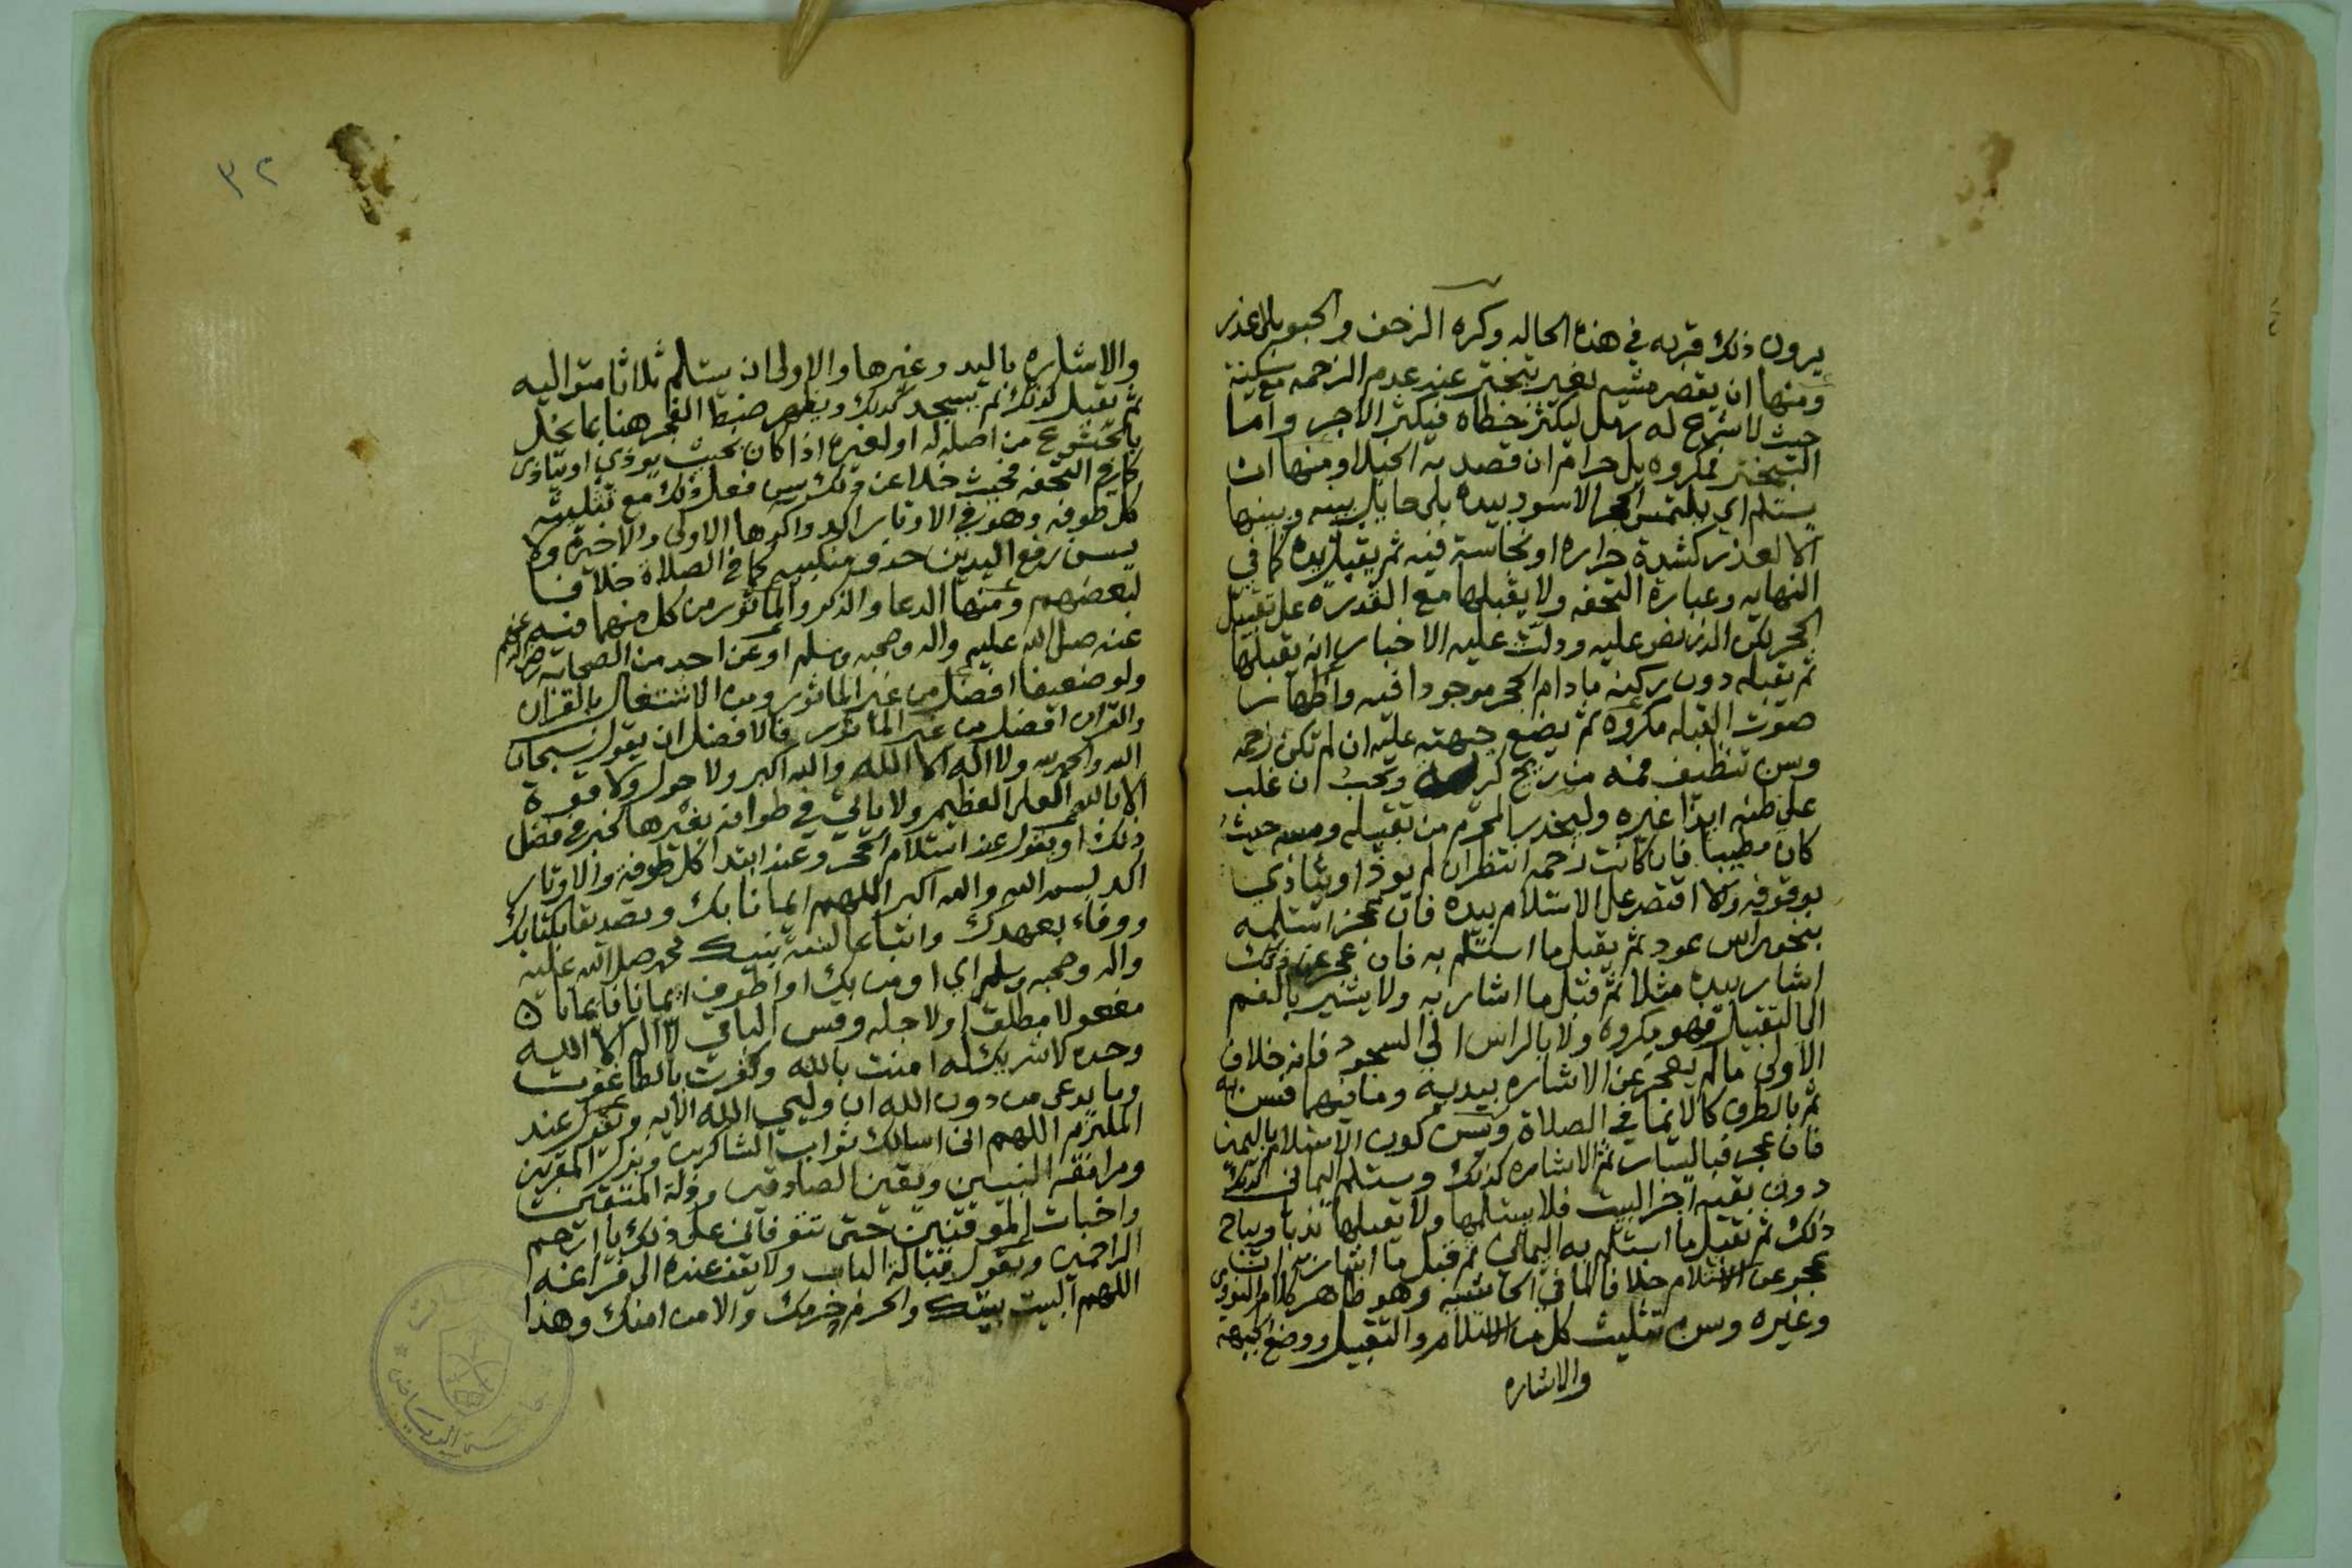 يرون ذلك قربه في هذه الحاله وكره الزحف والحبو بلا عذر
ومنها ان يقصر مشيه بغير تبختر عند عدم الزحمه مع سكينة
حيث لا شرع له رمل ليكثر خطاه فيكثر الاجر واما
التبختر فمكروه بل حرام ان قصد به الخيلا ومنها ان
يستلم اي يلتمس الحجر الاسود بيده بلا حايل بينه وبينها
الا لعذر كشدة حراره او نجاسة فيه ثم يقبل يده كما في
النهايه وعبارة التحفه ولا يقبلها مع القدرة على تقبيل
الحجر لكن الذي نص عليه ودلت عليه الاخبار انه يقبلها
ثم يقبله دون ركنه ما دام الحجر موجودا فيه واظهار
صوت القبله مكروه ثم يضع جبهته عليه ان لم تكن زحمه
وسن تنظيف فمه من ريح كريه ويجب ان غلب
على ظنه ايذا غيره وليحذر المحرم من تقبيله ومسه حيث
كان مطيبا فان كانت زحمه انتظر ان لم يوذ او يتاذى
بوقوفه والا اقتصر على الاستلام بيده فان عجز استلمه
بنحو راس عود ثم يقبل ما استلم به فان عجز عن ذلك
اشار بيده مثلا ثم قبل ما اشار به ولا يشير بالفم
الى التقبيل فهو مكروه ولا بالراس الى السجود فانه خلاف
الاولى ما لم يعجز عن الاشاره بيديه وما فيهما فسن به
ثم بالطرف كالايما في الصلاة ويسن كون الاستلام باليمين
فان عجز فباليسار ثم الاشاره كذلك ويستلم اليماني كذلك
دون بقية اجزا البيت فلا يستلمها ولا يقبلها ندبا ويباح
ذلك ثم تقبيل ما استلم به اليماني ثم قبل ما اشار به ان
عجز عن الاستلام خلافا لما في الحاشيه وهو ظاهر كلام النووي
وغيره وسن تثليث كل من الاستلام والتقبيل ووضع الجبهه
والاشاره
٣٢
والاشاره باليد وغيرها والاولى ان يستلم ثلاثا متواليه
ثم يقبل كذلك ثم يسجد كذلك ويظهر ضبط الفجر هنا بما يخل
بالخشوع من اصله له او لغيره اذا كان بحيث يوذي او يتاذى
كما في التحفه فحيث خلا عن ذلك سن فعل ذلك مع تثليثه
كل طوفه وهو في الاوتار اكد واكدها الاولى والاخيرة ولا
يسن رفع اليدين حذو منكبيه كما في الصلاة خلافا
لبعضهم ومنها الدعا والذكر والماثور من كل منهما فيه
عنه صلى الله عليه واله وصحبه وسلم او عن احد من الصحابه رضي الله عنهم
ولو ضعيفا افضل من غير الماثور ومن الاشتغال بالقران
والقران افضل من غير الماثور فالافضل ان يقول سبحان
الله والحمد لله ولا اله الا الله والله اكبر ولا حول ولا قوة
الا بالله العلي العظيم ولا ياتي في طوافه بغيرها لخبر في فضل
ذلك او يقول عند استلام الحجر وعند ابتدا كل طوفة والاوتار
اكد بسم الله والله اكبر اللهم ايمانا بك وتصديقا بكتابك
ووفاء بعهدك واتباعا لسنة نبيك محمد صلى الله عليه
واله وصحبه وسلم اي اومن بك او اطوف ايمانا فايمانا
مفعولا مطلق او لاجله وقس الباقي لا اله الا الله
وحده لا شريك له امنت بالله وكفرت بالطاغوت
وما يدعى من دون الله ان وليي الله الايه ويقول عند
الملتزم اللهم اني اسالك ثواب الشاكرين ونزل المقربين
ومرافقة النبيين ويقين الصادقين وذلة المتقين
واخبات الموقنين حتى تتوفاني على ذلك يا ارحم
الراحمين ويقول قبالة الباب ولا يقف عنده الى فراغه
اللهم البيت بيتك والحرم حرمك والامن امنك وهذا
جامعة الرياض